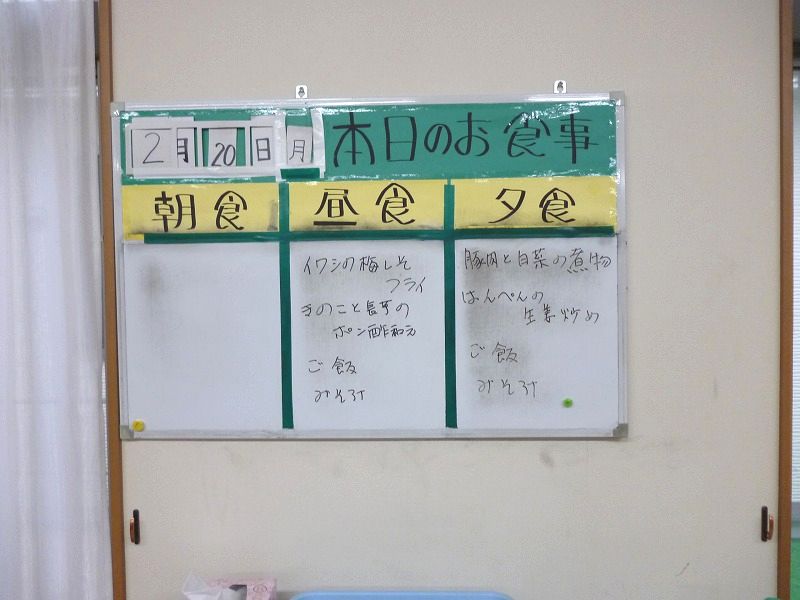 2月 20日 月 本日のお食事
朝食 昼食 夕食
イワシの梅しそ
フライ
きのこと長芋の
ポン酢和え
ご飯
みそ汁
豚肉と白菜の煮物
はんぺんの
生姜炒め
ご飯
みそ汁